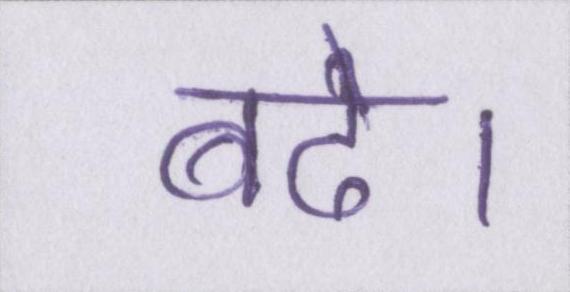 बढे।